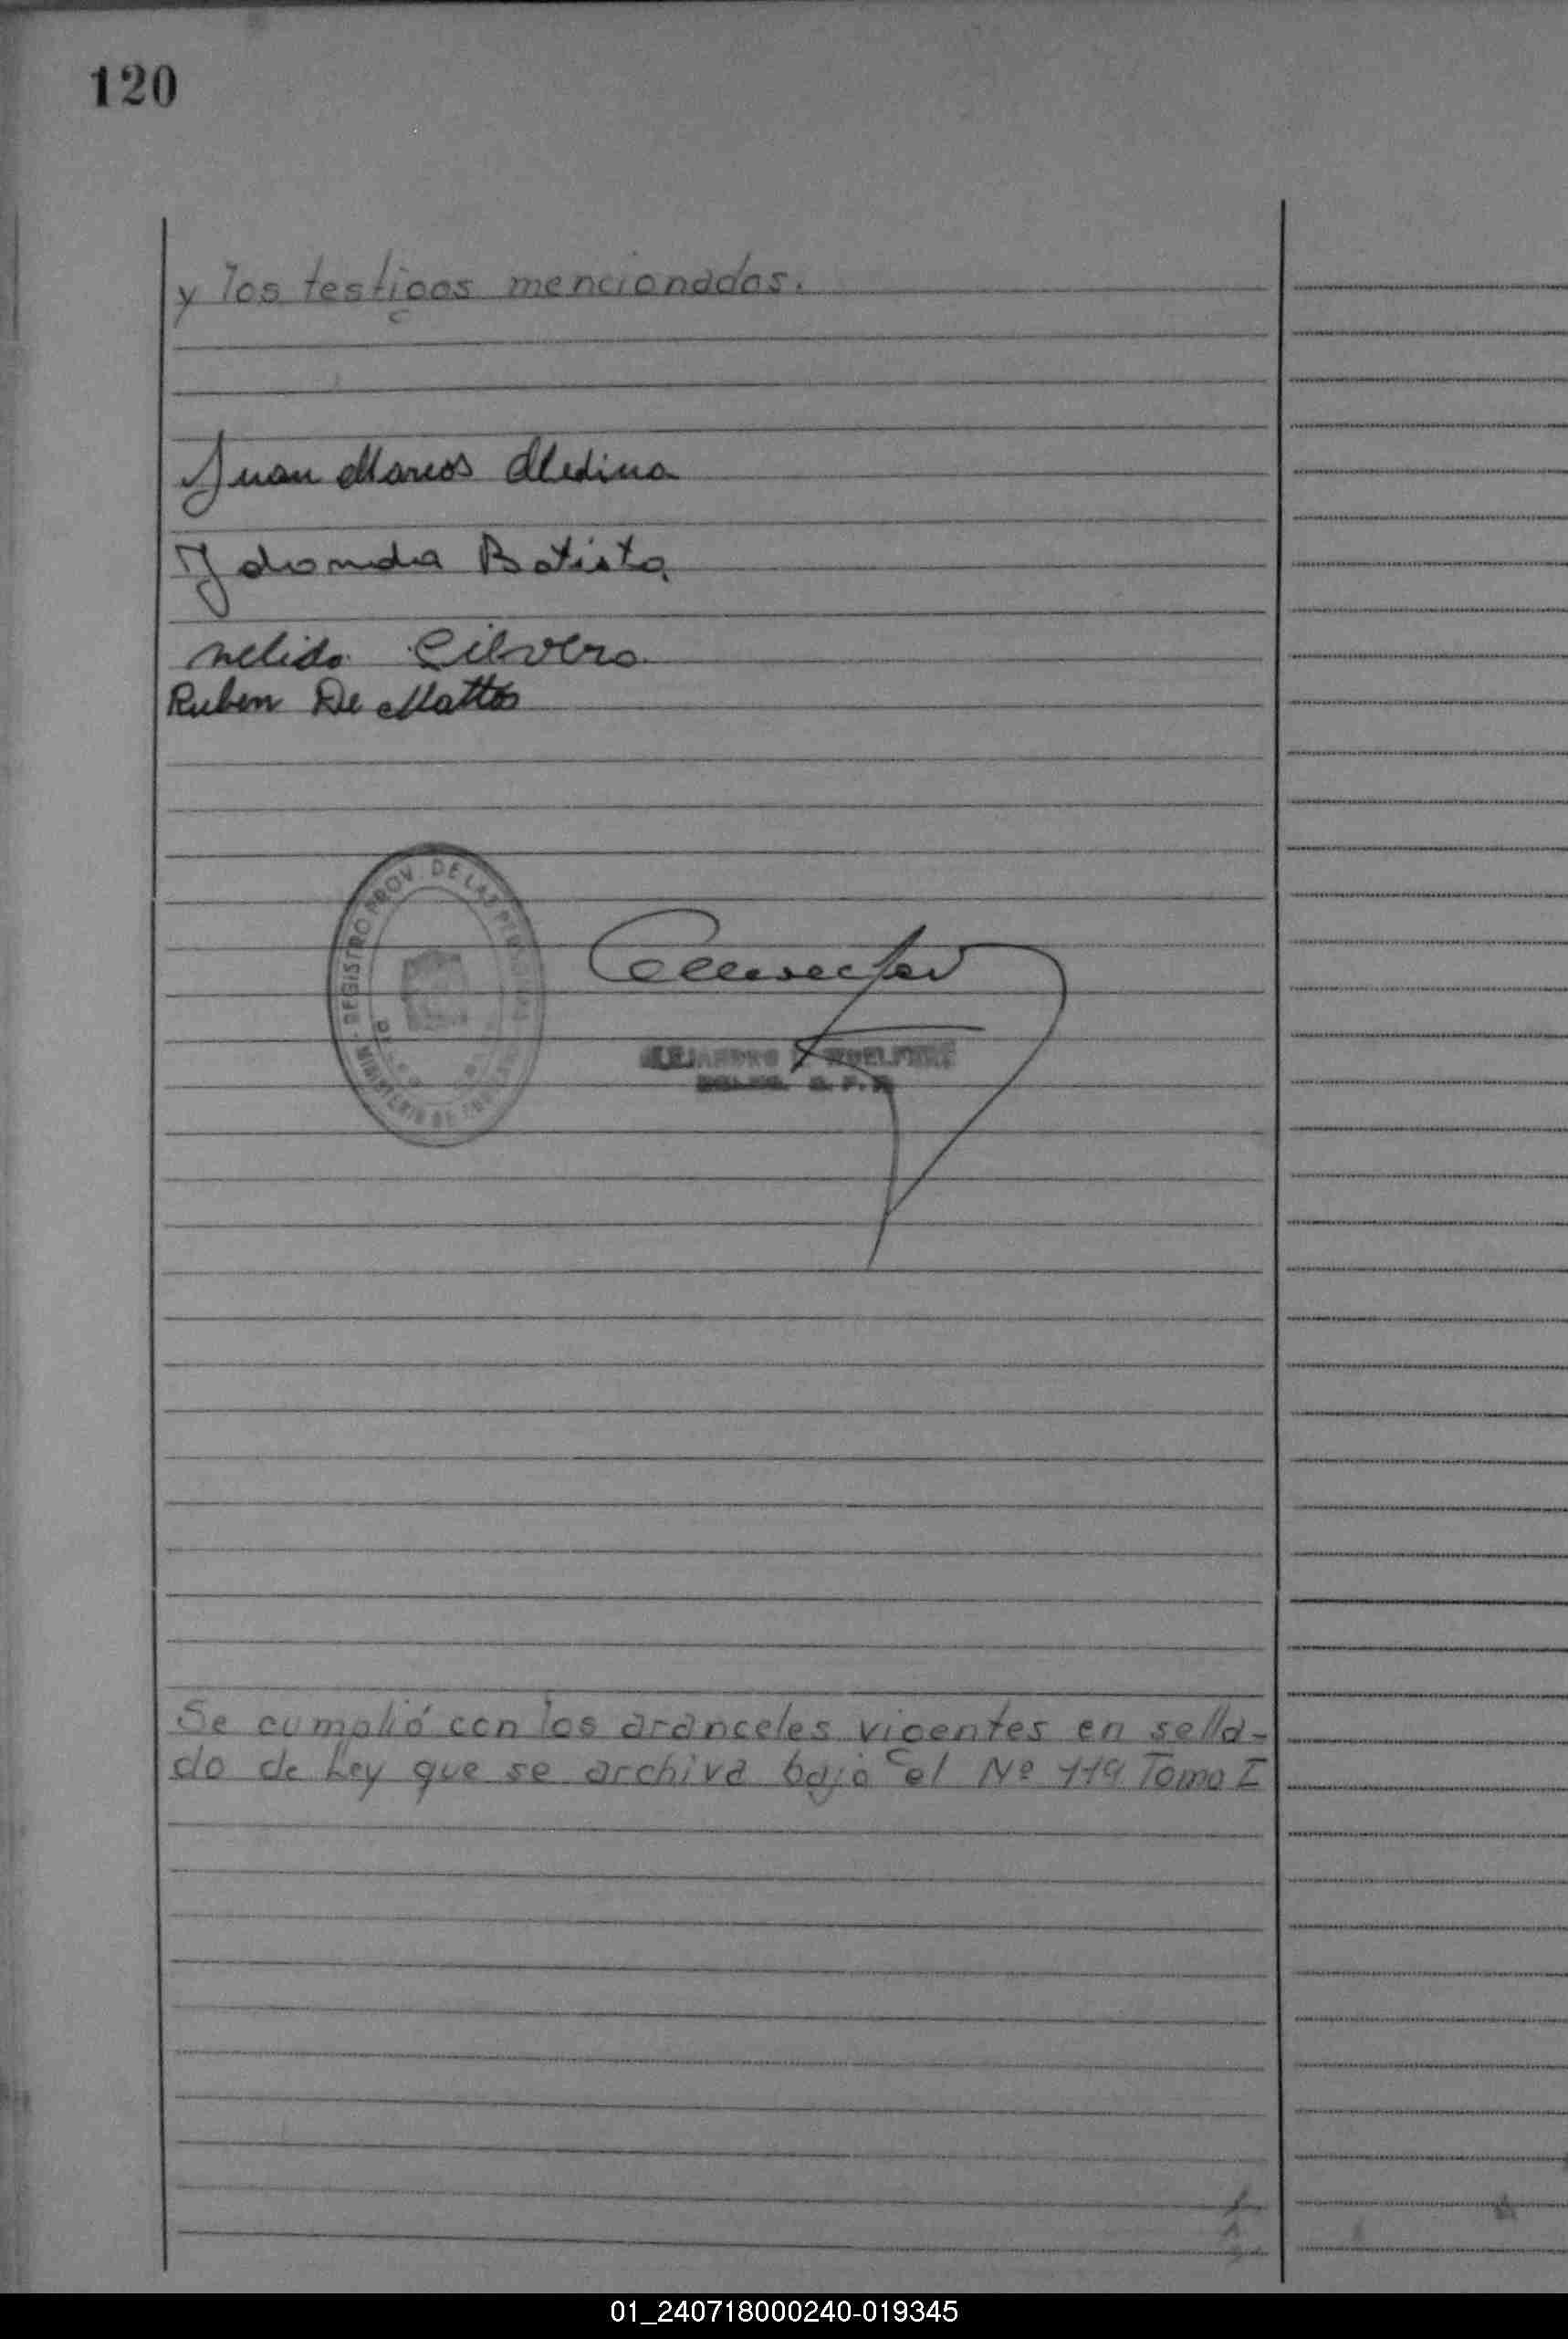 120
y los testigos mencionados.
Juan Marcos Medina
Batista
Nelida Silvero
Ruben De Mattos
REGISTRO PROV. DE LAS PERSONAS
MINISTERIO DE
ALEJANDRO
Se cumplió con los aranceles vigentes en sella-
do de Ley que se archiva bajo el Nº 119 Tomo I
01_240718000240-019345